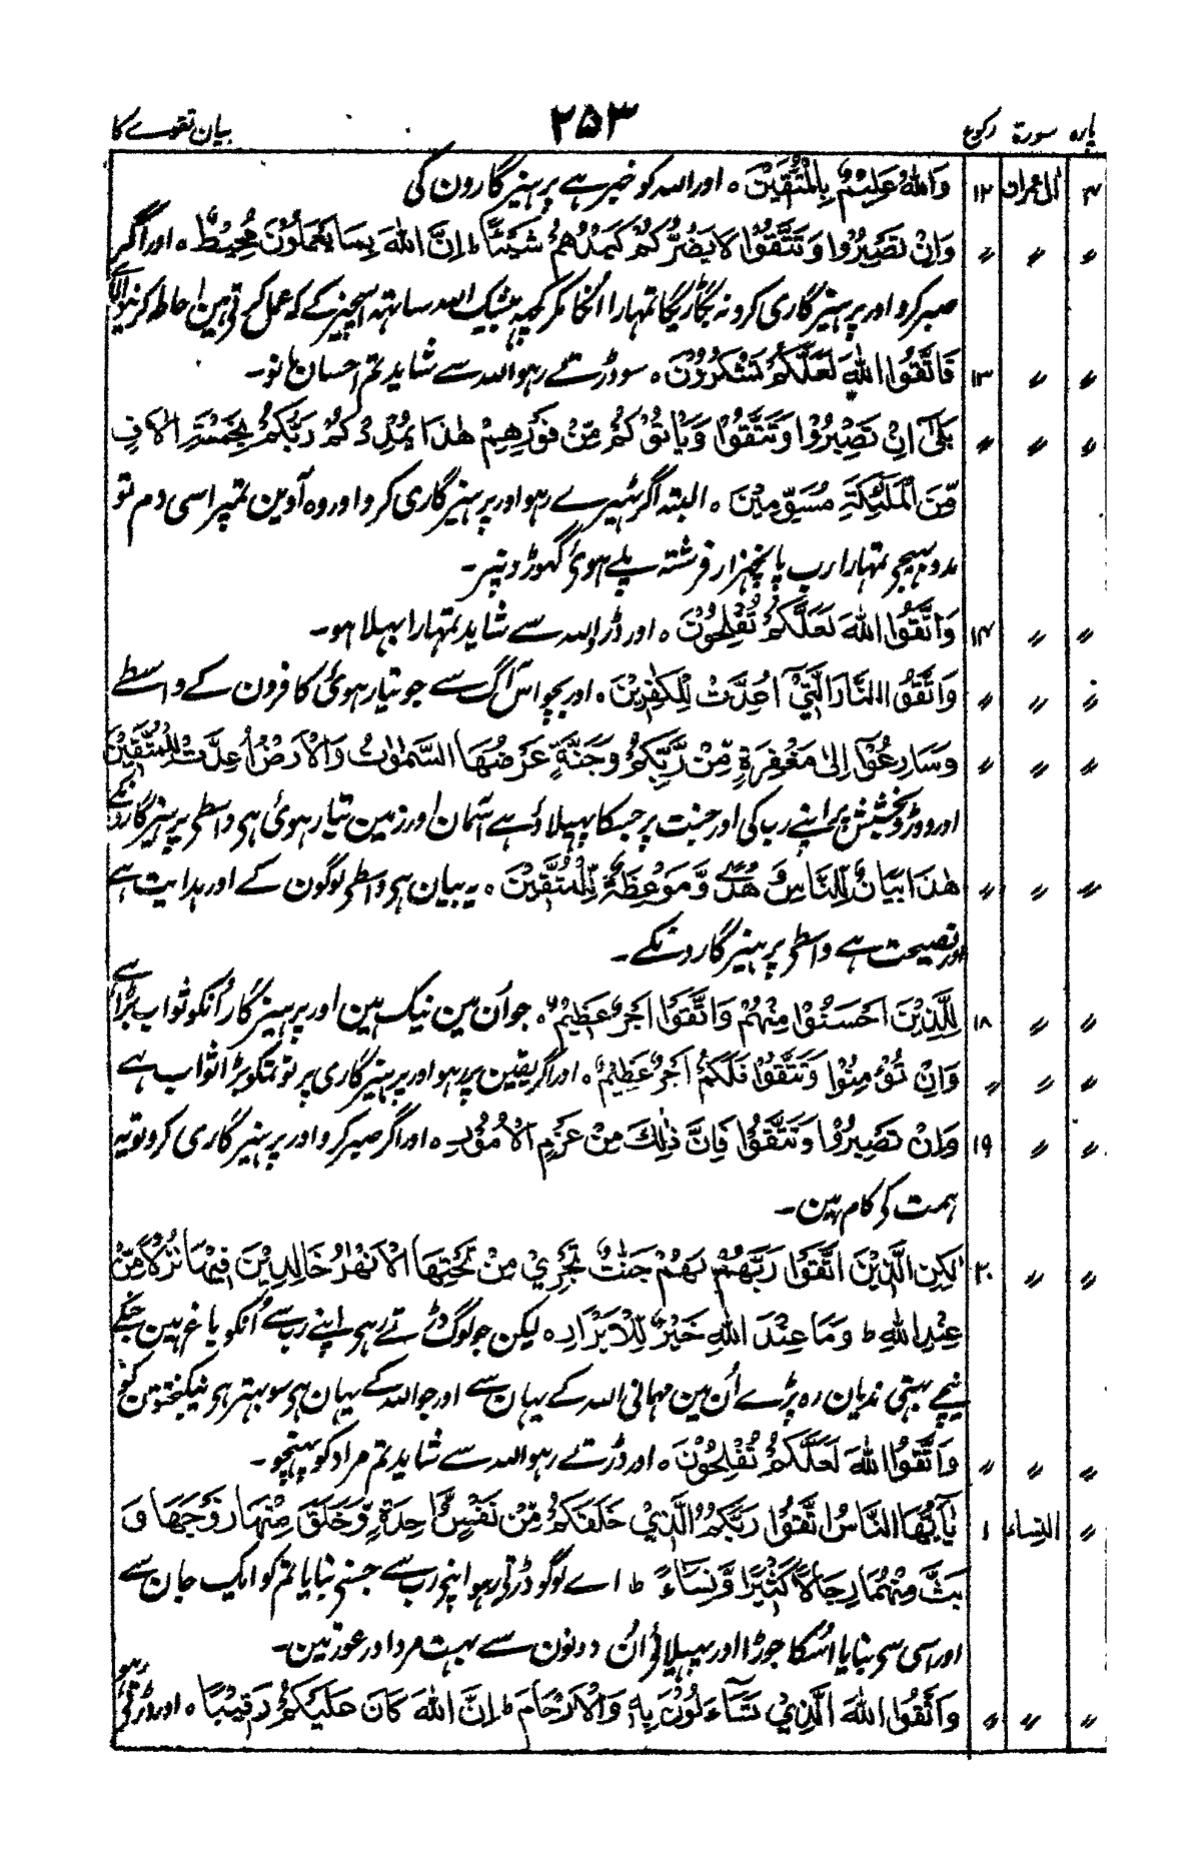 پارہ سورۃ رکوع ۲۵۳ بیان تقوے کا
۴ اٰل عمران ۱۲ وَاللّٰهُ عَلِيْمٌۢ بِالْمُتَّقِيْنَ ہ اور اللہ کو خبر ہے پرہیزگارون کی
〃 〃 〃 وَاِنْ تَصْبِرُوْا وَتَتَّقُوْا لَا يَضُرُّكُمْ كَيْدُهُمْ شَيْئًا ط اِنَّ اللّٰهَ بِمَا يَعْمَلُوْنَ مُحِيْطٌ ہ اور اگر
صبر کرو اور پرہیزگاری کرو نہ بگاڑیگا تمہارا انکا مکر کچہہ بیشک اللہ ساتہہ اسچیز کے کہ عمل کرتی ہین احاطہ کرنیوالا ہے
〃 〃 ۱۳ فَاتَّقُوا اللّٰهَ لَعَلَّكُمْ تَشْكُرُوْنَ ہ سو ڈرتے رہو اللہ سے شاید تم احسان مانو۔
〃 〃 〃 بَلٰٓى اِنْ تَصْبِرُوْا وَتَتَّقُوْا وَيَاْتُوْكُمْ مِّنْ فَوْرِهِمْ هٰذَا يُمْدِدْكُمْ رَبُّكُمْ بِخَمْسَةِ اٰلَافٍ
مِّنَ الْمَلٰٓئِكَةِ مُسَوِّمِيْنَ ہ البتہ اگر ٹہیرے رہو اور پرہیزگاری کرو اور وہ آوین تمپر اسی دم تو
مدد بہیجے تمہارا رب پانچہزار فرشتہ پلے ہوئے گہوڑونپر۔
〃 〃 ۱۴ وَاتَّقُوا اللّٰهَ لَعَلَّكُمْ تُفْلِحُوْنَ ہ اور ڈرو اللہ سے شاید تمہارا بہلا ہو۔
〃 〃 〃 وَاتَّقُوا النَّارَ الَّتِيْٓ اُعِدَّتْ لِلْكٰفِرِيْنَ ہ اور بچو اس آگ سے جو تیار ہوئی کافرون کے واسطے
〃 〃 〃 وَسَارِعُوْٓا اِلٰى مَغْفِرَةٍ مِّنْ رَّبِّكُمْ وَجَنَّةٍ عَرْضُهَا السَّمٰوٰتُ وَالْاَرْضُ اُعِدَّتْ لِلْمُتَّقِيْنَ
اور دوڑو بخشش پر اپنے رب کی اور جنت پر جسکا پہیلاؤ ہے آسمان اور زمین تیار ہوئی ہی واسطی پرہیزگارونکے
〃 〃 〃 هٰذَا بَيَانٌ لِّلنَّاسِ وَهُدًى وَّمَوْعِظَةٌ لِّلْمُتَّقِيْنَ ہ یہ بیان ہی واسطی لوگون کے اور ہدایت ہے
اور نصیحت ہے واسطی پرہیزگارونکے۔
〃 〃 ۱۸ لِلَّذِيْنَ اَحْسَنُوْا مِنْهُمْ وَاتَّقَوْا اَجْرٌ عَظِيْمٌ ہ جو اُن مین نیک ہین اور پرہیزگار اُنکو ثواب بڑا ہے
〃 〃 〃 وَاِنْ تُؤْمِنُوْا وَتَتَّقُوْا فَلَكُمْ اَجْرٌ عَظِيْمٌ ہ اور اگر یقین پر رہو اور پرہیزگاری پر تو تمکو بڑا ثواب ہے
〃 〃 ۱۹ وَاِنْ تَصْبِرُوْا وَتَتَّقُوْا فَاِنَّ ذٰلِكَ مِنْ عَزْمِ الْاُمُوْرِ ہ اور اگر صبر کرو اور پرہیزگاری کرو تو یہ
ہمت کے کام ہین۔
〃 〃 ۲۰ لٰكِنِ الَّذِيْنَ اتَّقَوْا رَبَّهُمْ لَهُمْ جَنّٰتٌ تَجْرِيْ مِنْ تَحْتِهَا الْاَنْهٰرُ خَالِدِيْنَ فِيْهَا نُزُلًا مِّنْ
عِنْدِ اللّٰهِ ط وَمَا عِنْدَ اللّٰهِ خَيْرٌ لِّلْاَبْرَارِ ہ لیکن جو لوگ ڈرتے رہے اپنے رب سے اُنکو باغ ہین جنکے
نیچے بہتی ندیان رہ پڑے اُن مین مہمانی اللہ کے یہان سے اور جو اللہ کے یہان ہی سو بہتر ہو نیکبختون کو
〃 〃 〃 وَاتَّقُوا اللّٰهَ لَعَلَّكُمْ تُفْلِحُوْنَ ہ اور ڈرتے رہو اللہ سے شاید تم مراد کو پہنچو۔
〃 النساء ۱ يٰٓاَيُّهَا النَّاسُ اتَّقُوْا رَبَّكُمُ الَّذِيْ خَلَقَكُمْ مِّنْ نَّفْسٍ وَّاحِدَةٍ وَّخَلَقَ مِنْهَا زَوْجَهَا وَ
بَثَّ مِنْهُمَا رِجَالًا كَثِيْرًا وَّنِسَآءً ط اے لوگو ڈرتی رہو اپنے رب سے جسنے بنایا تم کو ایک جان سے
اور اسی سے بنایا اُسکا جوڑا اور پہیلائی اُن دونون سے بہت مرد اور عورتین۔
〃 〃 〃 وَاتَّقُوا اللّٰهَ الَّذِيْ تَسَآءَلُوْنَ بِهٖ وَالْاَرْحَامَ ط اِنَّ اللّٰهَ كَانَ عَلَيْكُمْ رَقِيْبًا ہ اور ڈرتے رہو